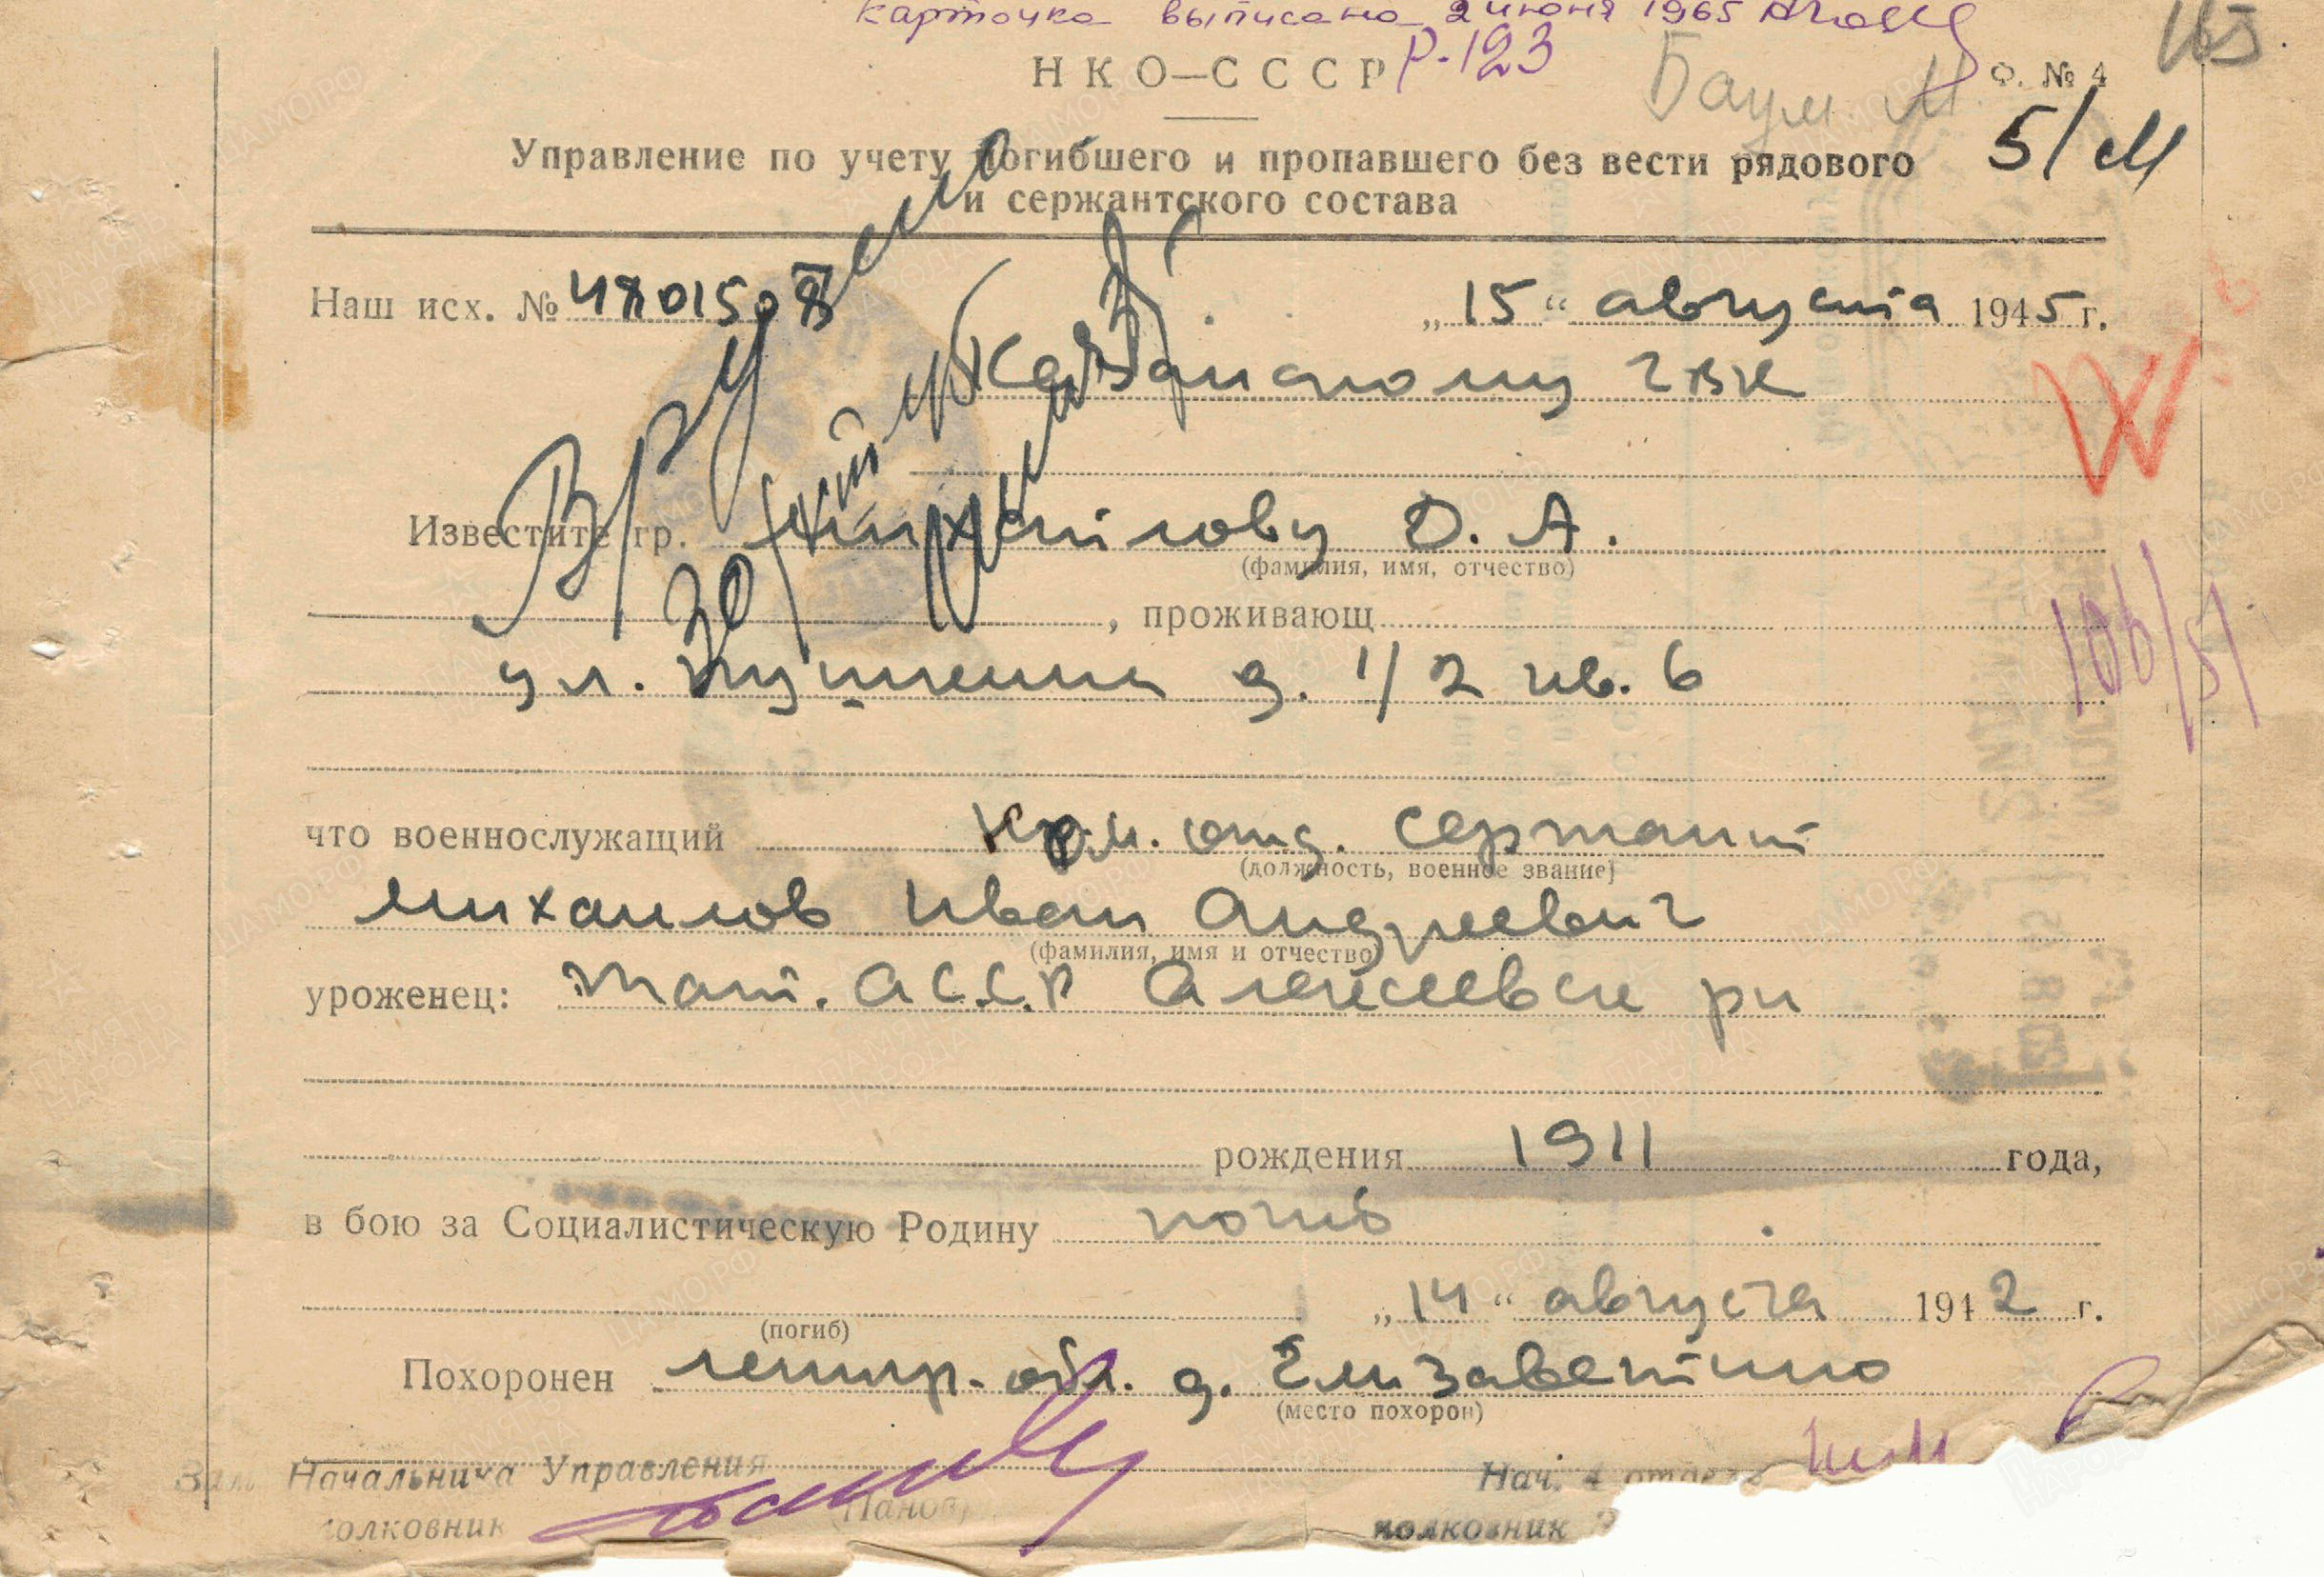 Карточка выписана 2 июня 1965
Р-123
165
НКО—СССР
Баум М.
Ф. № 4
5/М
Управление по учету погибшего и пропавшего без вести рядового
и сержантского состава
Наш исх. №
„15“ августа 1945 г.
Казанскому гвк
Вручено
Известите гр. Михайлову О. А.
(фамилия, имя, отчество)
, проживающ
106/51
ул. Пушкина д. 1/2 кв. 6
что военнослужащий ком. отд. сержант
(должность, военное звание)
Михаилов Иван Андреевич
(фамилия, имя и отчество)
уроженец: Тат. АССР Алексеевск рн
рождения 1911 года,
в бою за Социалистическую Родину погиб
„14“ августа 1942 г.
(погиб)
Похоронен Ленинр. обл. д. Елизаветино
(место похорон)
Зам. Начальника Управления
Нач. 4 отдела
полковник (Панов)
полковник